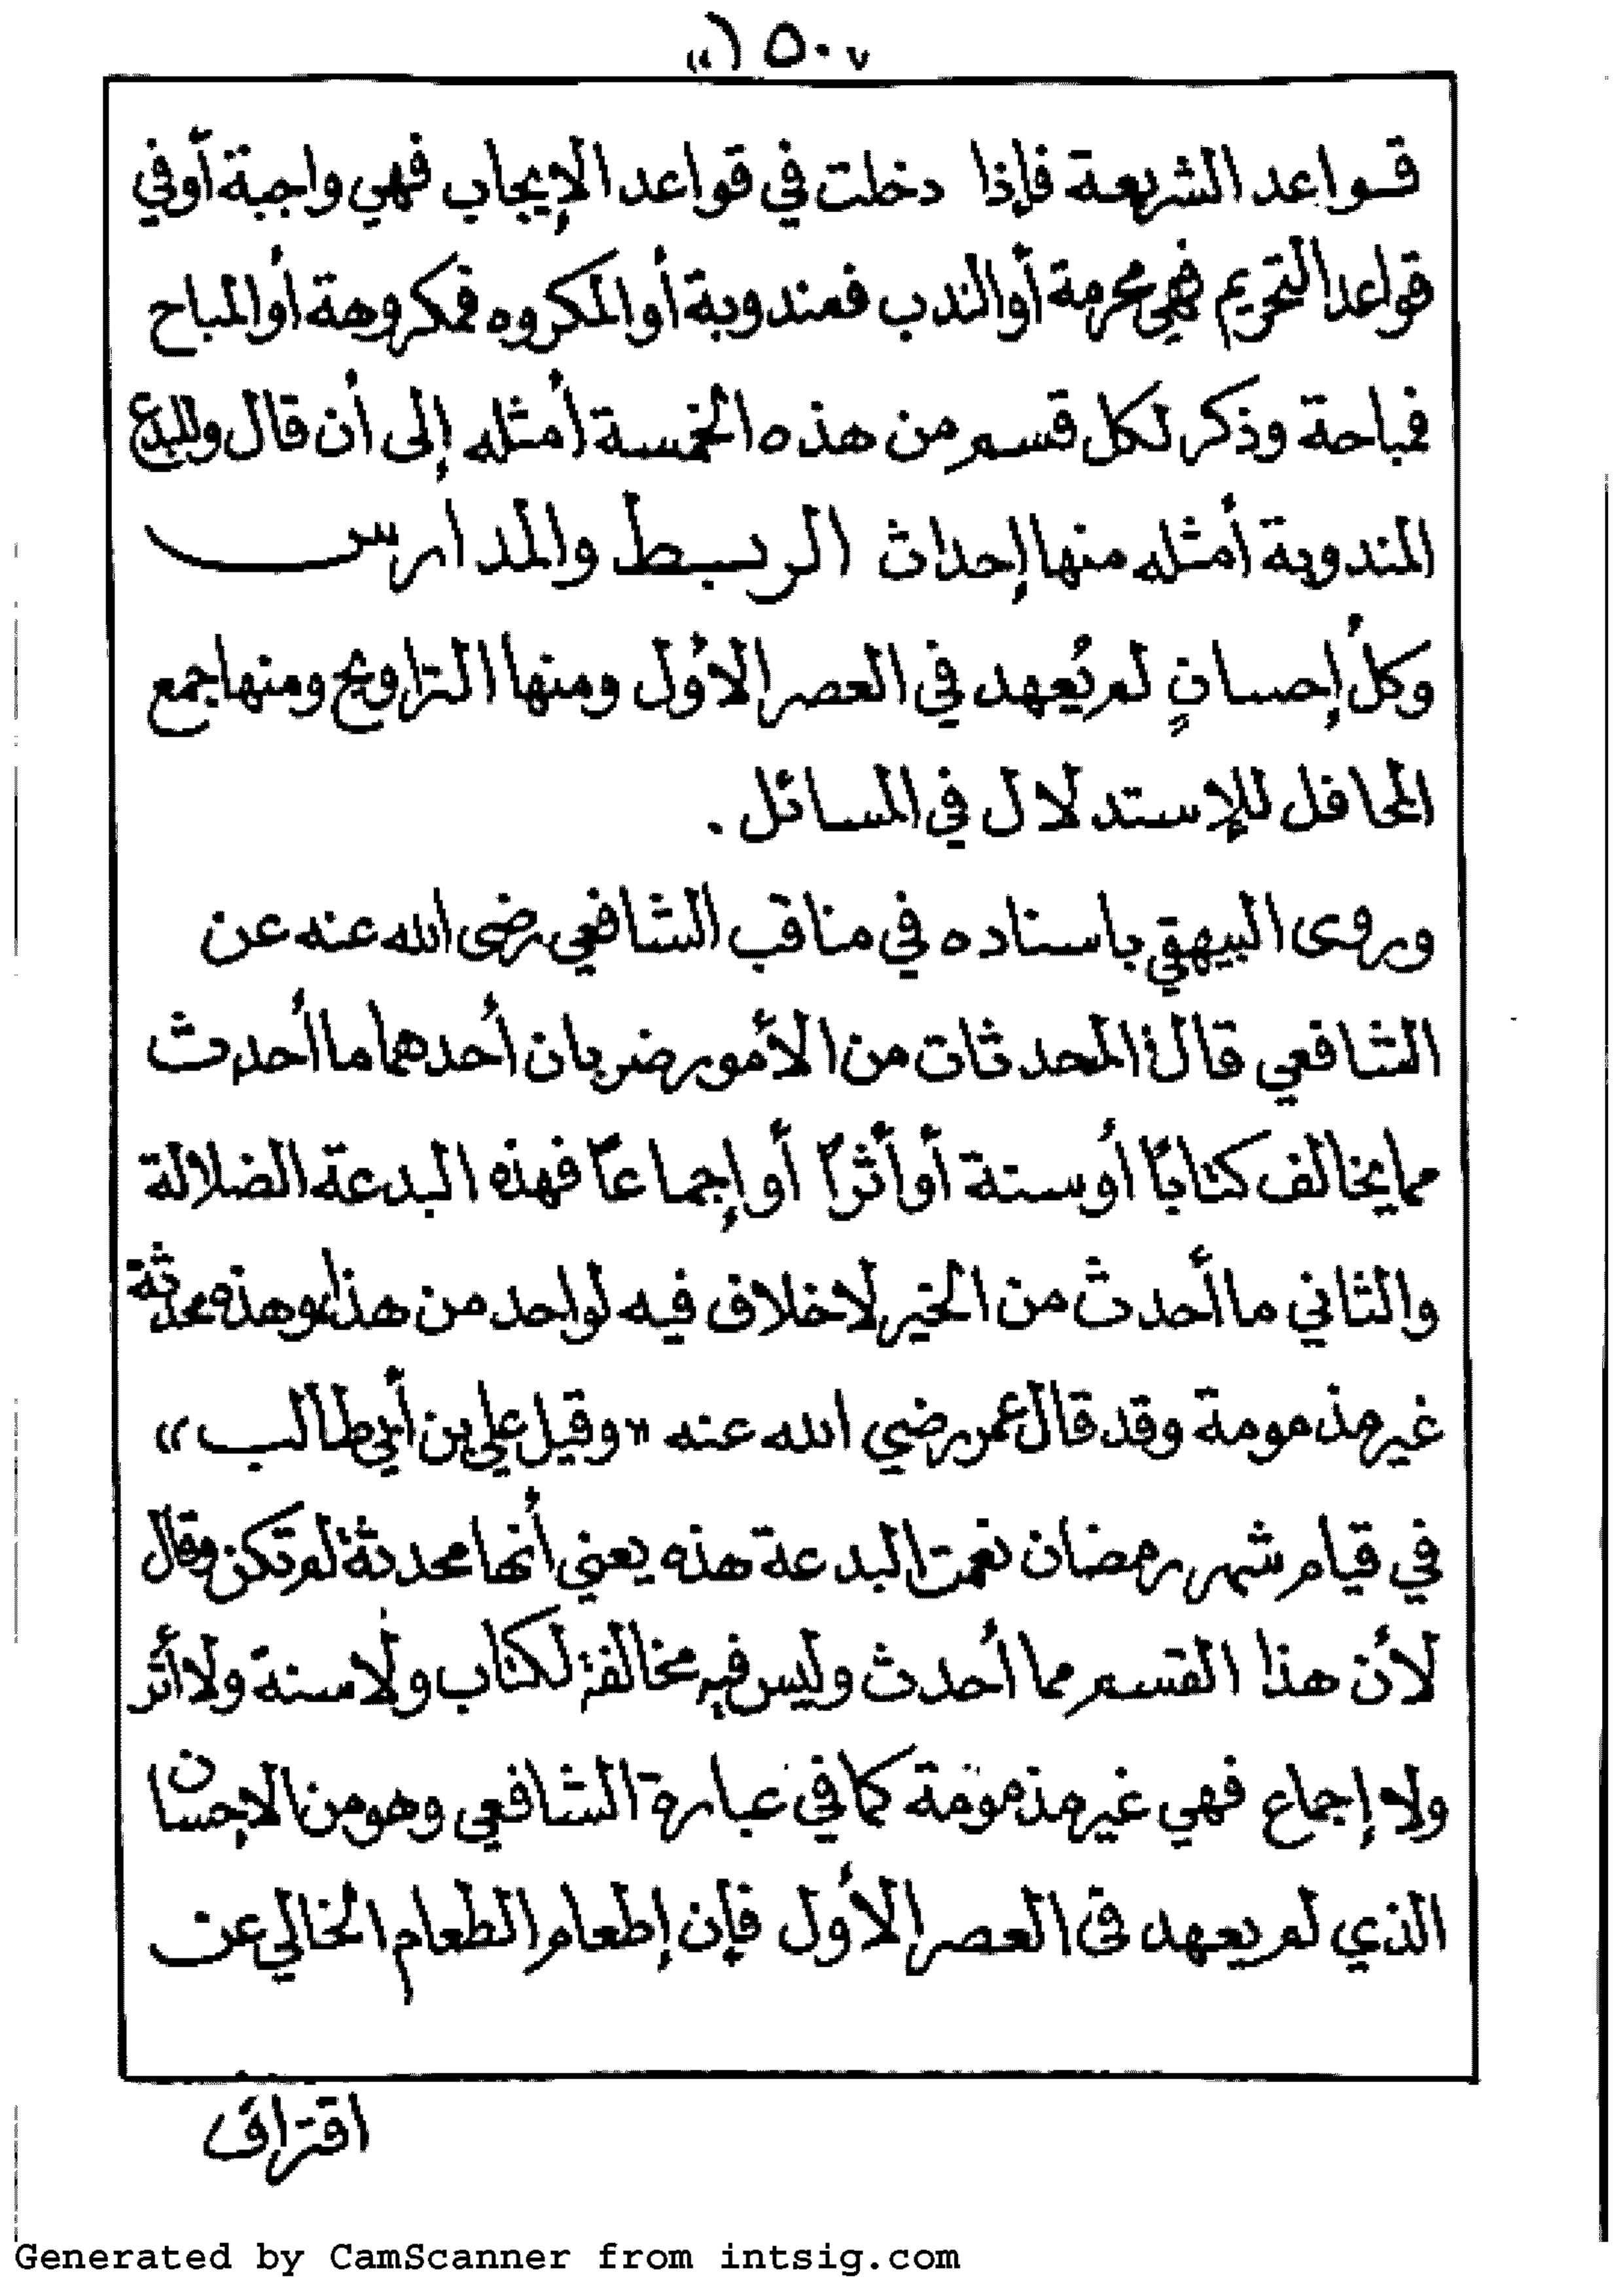 قواعد الشريعة فإذا دخلت في قواعد الإيجاب فهي واجبة أو في
قواعد التحريم فهي محرمة أو الندب فمندوبة أو المكروه فمكروهة أو المباح
فمباحة وذكر لكل قسم من هذه الخمسة أمثله إلى أن قال وللبدع
المندوبة أمثله منها إحداث الربط والمدارس
وكلُ إحسانٍ لم يُعهد في العصر الأول ومنها التراويح ومنها جمع
المحافل للإستدلال في المسائل .
وروى البيهقي باسناده في مناقب الشافعي رضى الله عنه عن
الشافعي قال المحدثات من الأمور ضربان أحدهما ما أحدث
مما يخالف كتابًا أو سنة أو أثرًا أو إجماعًا فهذه البدعة الضلالة
والثاني ما أحدث من الخير لا خلاف فيه لواحد من هذا، وهذه محدثة
غير مذمومة وقد قال عمر رضي الله عنه «وقيل علي بن أبي طالب»
في قيام شهر رمضان نعمت البدعة هذه يعني أنها محدثة لم تكن وقال
لأن هذا القسم مما أحدث وليس فيه مخالفة لكتاب ولا سنة ولا أثر
ولا إجماع فهي غير مذمومة كما في عبارة الشافعي وهو من الإحسان
الذي لم يعهد في العصر الأول فإن إطعام الطعام الخالي عن
اقتراف
Generated by CamScanner from intsig.com